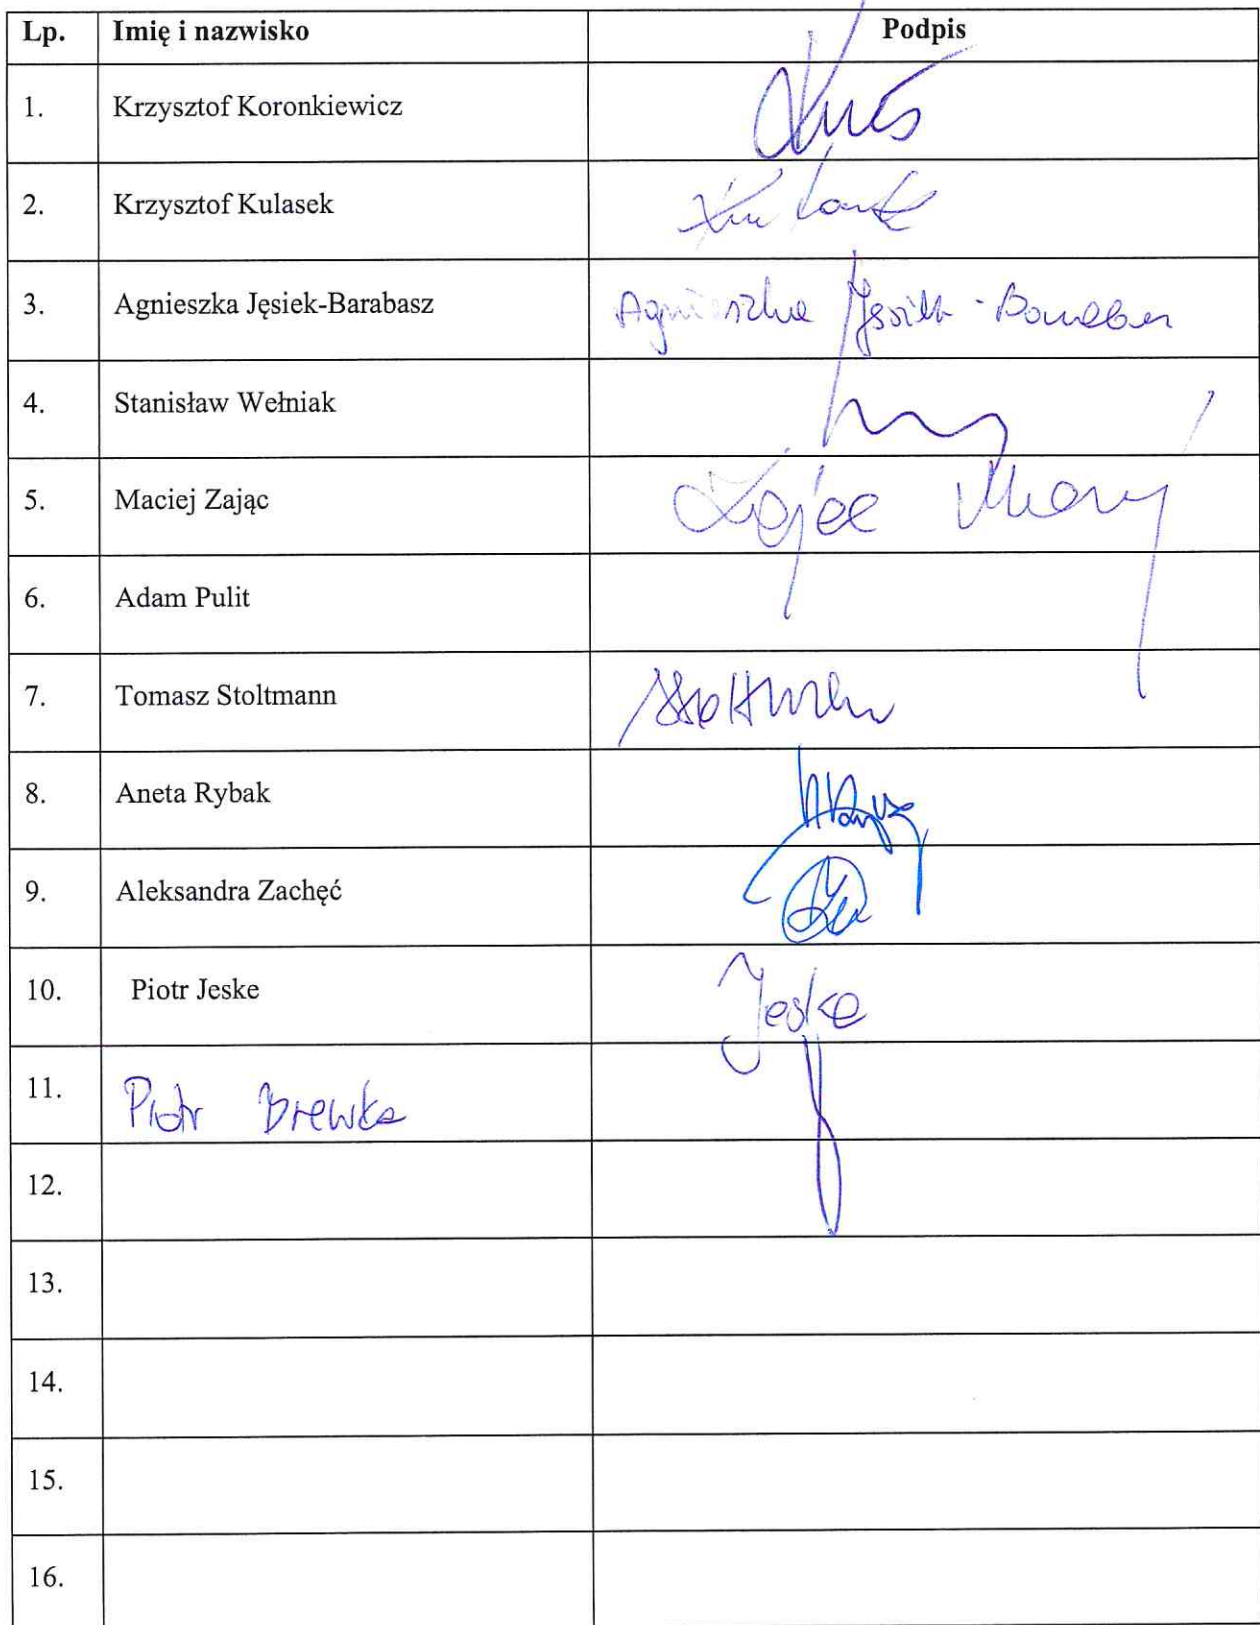 Lp. Imię i nazwisko Podpis
1. Krzysztof Koronkiewicz
2. Krzysztof Kulasek
3. Agnieszka Jęsiek-Barabasz Agnieszka Jęsiek-Barabasz
4. Stanisław Wełniak
5. Maciej Zając Zając
6. Adam Pulit
7. Tomasz Stoltmann Stoltmann
8. Aneta Rybak
9. Aleksandra Zachęć
10. Piotr Jeske Jeske
11. Piotr Brewka
12.
13.
14.
15.
16.